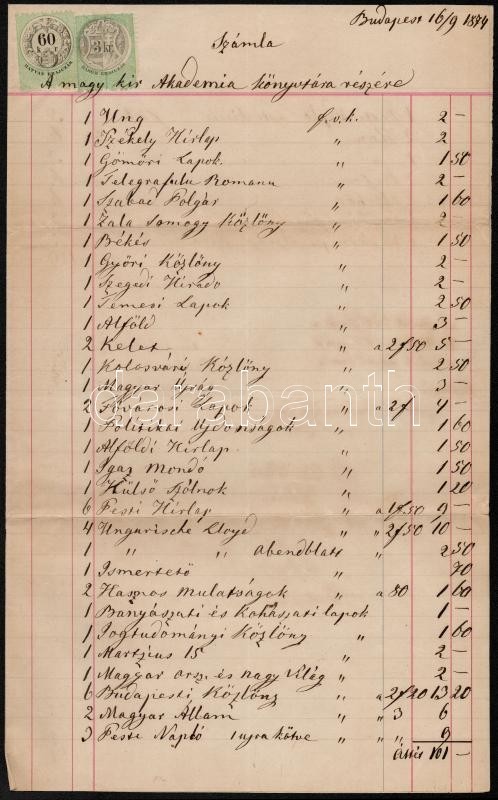 Budapest 16/9 1874
60 kr
3 kr
Számla
A magy kir Akademia könyvtára részére
1 Ung f.v.k. 2 –
1 Székely Hirlap " 2 –
1 Gömöri Lapok " 1 50
1 Telegrafulu Romanu " 2 –
1 Szabad Polgár " 1 60
1 Zala Somogy Közlöny " 2 –
1 Békés " 1 50
1 Győri Közlöny " 2 –
1 Szegedi Hirado " 2 –
1 Temesi Lapok " 2 50
1 Alföld " 3 –
2 Kelet " a 2f50 5 –
1 Kolosvári Közlöny " 2 50
1 Magyar Ujság " 3 –
2 Fővárosi Lapok " a 2f 4 –
1 Politikai Ujdonságok " 1 60
1 Alföldi Hirlap " 1 50
1 Igaz Mondó " 1 50
1 Külső Szolnok " 1 20
6 Pesti Hirlap " a 1f50 9 –
4 Ungarische Lloyd " " 2f50 10 –
1 " " Abendblatt " 2 50
1 Ismertető " 70
2 Hasznos Mulatságok " a 80 1 60
1 Bányászati és Kohászati lapok 1 –
1 Jogtudományi Közlöny " 1 60
1 Martzius 15 " 2 –
1 Magyar orsz. és nagy Világ " 2 –
6 Budapesti Közlöny " a 2f20 13 20
2 Magyar Állam " " 3 6
3 Pesti Napló ujra kötve " " " 9
101 –
darabanth